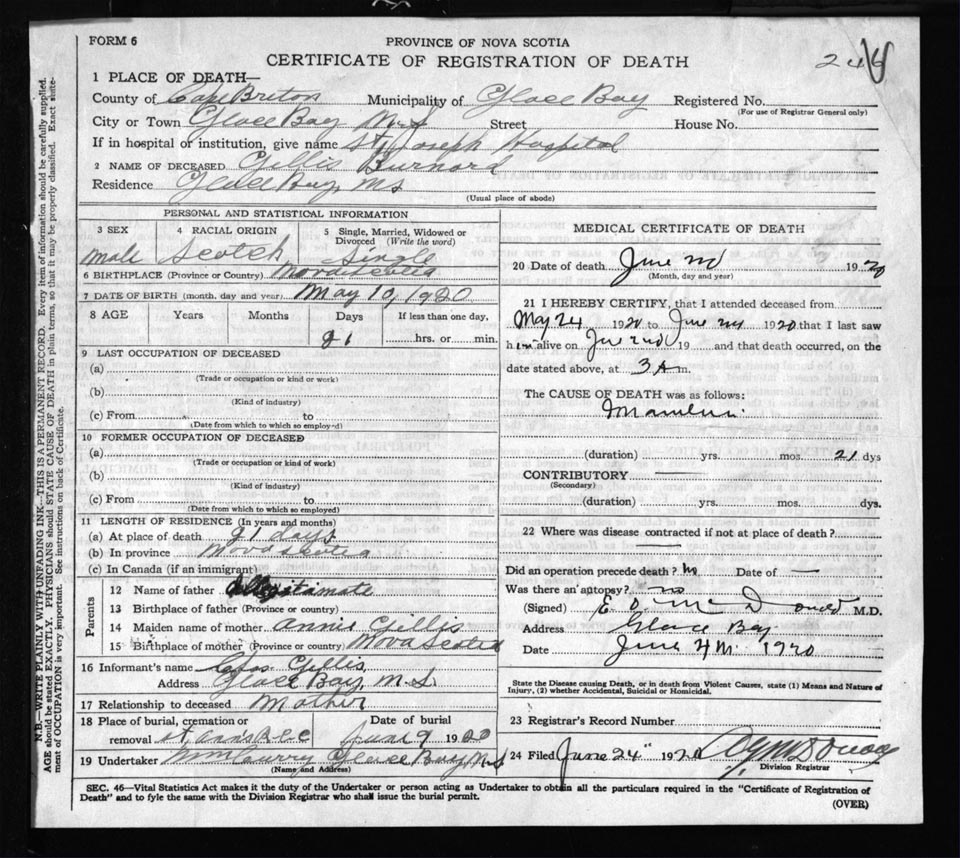 FORM 6
PROVINCE OF NOVA SCOTIA
CERTIFICATE OF REGISTRATION OF DEATH
246
1 PLACE OF DEATH—
County of Cape Breton Municipality of Glace Bay Registered No.
(For use of Registrar General only)
City or Town Glace Bay N.S Street House No.
If in hospital or institution, give name St Joseph Hospital
2 NAME OF DECEASED Gillis Burnard
Residence Glace Bay, NS
(Usual place of abode)
PERSONAL AND STATISTICAL INFORMATION
3 SEX 4 RACIAL ORIGIN 5 Single, Married, Widowed or Divorced (Write the word)
Male Scotch Single
6 BIRTHPLACE (Province or Country) Nova Scotia
7 DATE OF BIRTH (month, day and year) May 10, 1920
8 AGE Years Months Days If less than one day,
21 hrs. or min.
9 LAST OCCUPATION OF DECEASED
(a)
(Trade or occupation or kind or work)
(b)
(Kind of industry)
(c) From to
(Date from which to which so employed)
10 FORMER OCCUPATION OF DECEASED
(a)
(Trade or occupation or kind of work)
(b)
(Kind of industry)
(c) From to
(Date from which to which so employed)
11 LENGTH OF RESIDENCE (In years and months)
(a) At place of death 21 days
(b) In province Nova Scotia
(c) In Canada (if an immigrant)
Parents
12 Name of father
13 Birthplace of father (Province or country)
14 Maiden name of mother Annie Gillis
15 Birthplace of mother (Province or country) Nova Scotia
16 Informant's name Gillis
Address Glace Bay, N.S.
17 Relationship to deceased Mother
18 Place of burial, cremation or removal Date of burial
June 9 1920
19 Undertaker Glace Bay, N.S
(Name and Address)
MEDICAL CERTIFICATE OF DEATH
20 Date of death June 2nd 1920
(Month, day and year)
21 I HEREBY CERTIFY, that I attended deceased from
May 24 1920 to June 2nd 1920 that I last saw
him alive on June 2nd 19 and that death occurred, on the
date stated above, at 3 A m.
The CAUSE OF DEATH was as follows:
(duration) yrs. mos. 21 dys
CONTRIBUTORY
(Secondary)
(duration) yrs. mos. dys.
22 Where was disease contracted if not at place of death?
Did an operation precede death? No Date of —
Was there an autopsy? no
(Signed) E. O. McDonald M.D.
Address Glace Bay
Date June 4th 1920
State the Disease causing Death, or in death from Violent Causes, state (1) Means and Nature of
Injury, (2) whether Accidental, Suicidal or Homicidal.
23 Registrar's Record Number
24 Filed June 24" 1920
Division Registrar
SEC. 46—Vital Statistics Act makes it the duty of the Undertaker or person acting as Undertaker to obtain all the particulars required in the "Certificate of Registration of
Death" and to fyle the same with the Division Registrar who shall issue the burial permit.
(OVER)
N.B.—WRITE PLAINLY WITH UNFADING INK—THIS IS A PERMANENT RECORD. Every item of information should be carefully supplied.
AGE should be stated EXACTLY. PHYSICIANS should STATE CAUSE OF DEATH in plain terms, so that it may be properly classified. Exact state-
ment of OCCUPATION is very important. See instructions on back of Certificate.